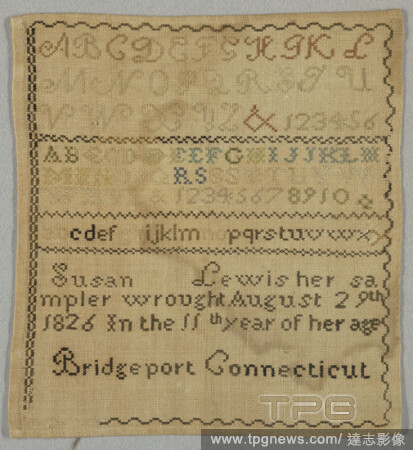 A B C D E F G H I K L
M N O P Q R S T U
V W X Y Z & 1 2 3 4 5 6
R S
1 2 3 4 5 6 7 8 9 10
cdef ijklm pqrstuvwx
Susan Lewis her sa
mpler wrought August 29th
1826 In the 11th year of her age
Bridgeport Connecticut
TPG
www.tpgnews.com/達志影像